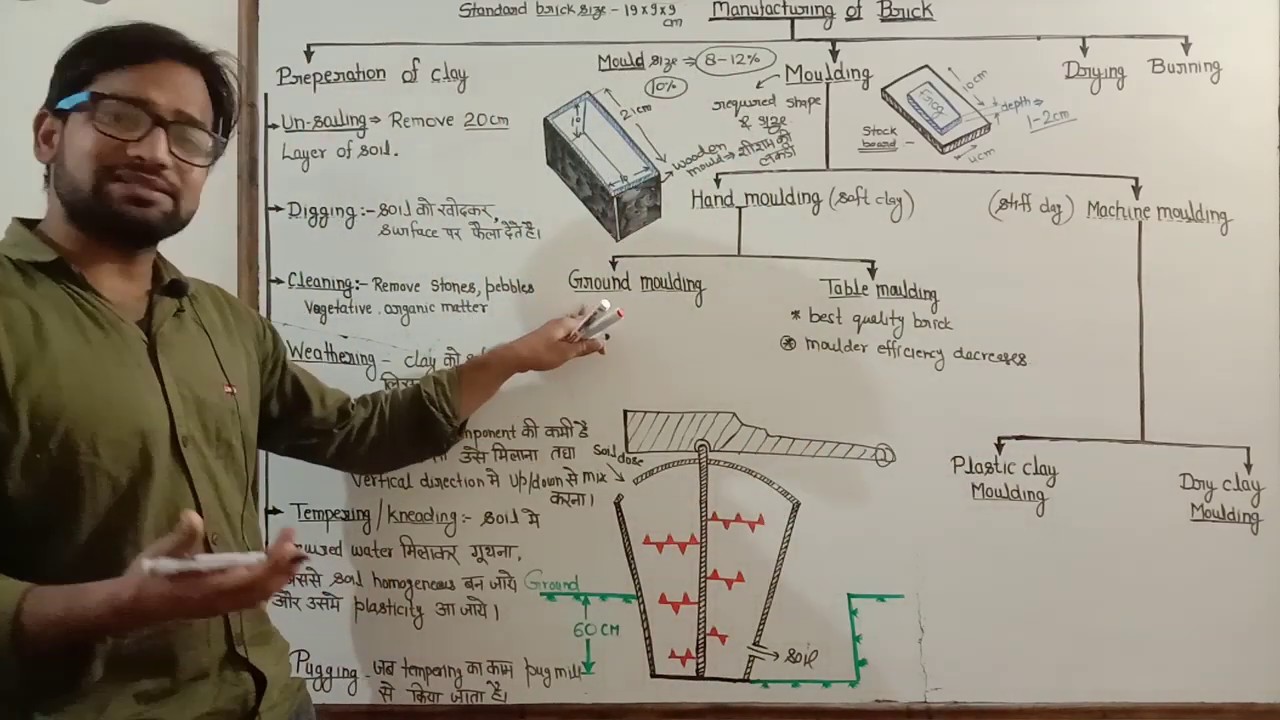 Standard brick size - 19×9×9 cm
Manufacturing of Brick
Preperation of clay
Un-soiling ⇒ Remove 20cm
Layer of soil.
Digging :- soil को खोदकर,
surface पर फैला देते है।
Cleaning :- Remove stones, pebbles
Vegetative. organic matter
Weathering - clay को
की कमी है
उसे मिलाना तथा
vertical direction मे up/down से mix
करना।
Tempering / Kneading :- soil मे
water मिलाकर गूथना,
soil homogeneous बन जाये
और उसमे plasticity आ जाये।
Pugging - जब tempering का काम pug mill
से किया जाता है।
Mould size ⇒ 8-12%
10%
21cm
10
wooden
mould ⇒ शीशम की
लकडी
Moulding
required shape
& size
Stock
board -
Frog
10cm
depth ⇒
1-2cm
4cm
Drying
Burning
Hand moulding (soft clay)
(stiff clay) Machine moulding
Ground moulding
Table moulding
* best quality brick
* moulder efficiency decreases
Plastic clay
Moulding
Dry clay
Moulding
Soil dose
Ground
60 CM
soil